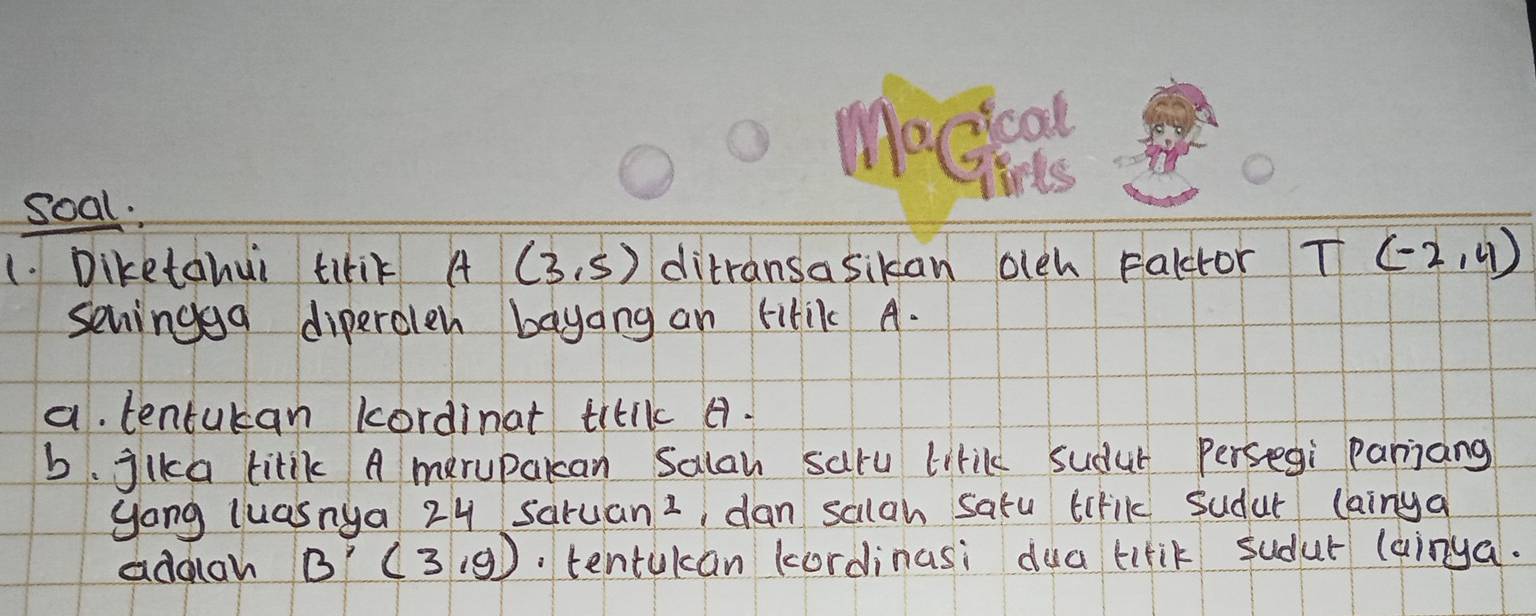 Magical
Girls
Soal:
1. Diketahui titik A (3,5) ditransasikan oleh Faktor T (-2,4)
sehingga diperoleh bayangan titik A.
a. tentukan kordinat titik A.
b. jika titik A merupakan Salah satu titik sudut Persegi Panjang
yang luasnya 24 satuan², dan salah satu titik sudut lainya
adalah B' (3,9). tentukan kordinasi dua titik sudut lainya.